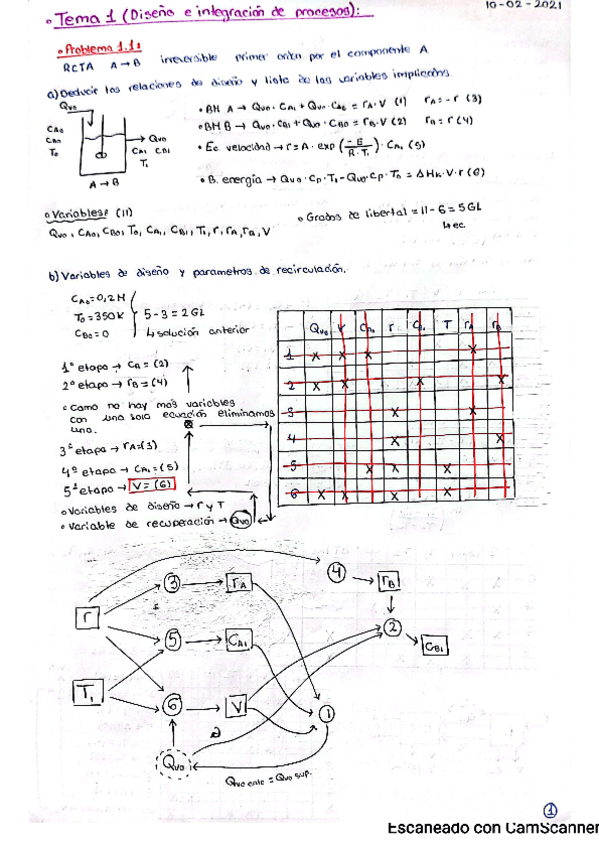 10-02-2021
• Tema 1 (Diseño e integración de procesos):
• Problema 1.1:
RCTA A → B irreversible primer orden por el componente A
a) Deducir las relaciones de diseño y lista de las variables implicadas
Qvo
CAo
CBo
To
Qvo
CA1 CB1
T1
A → B
• BM A → Qvo · CA1 + Qvo · CAo = rA · V (1) rA = -r (3)
• BM B → Qvo · CB1 + Qvo · CBo = rB · V (2) rB = r (4)
• Ec. velocidad → r = A · exp (-E / R·T1) · CA1 (5)
• B. energía → Qvo · Cp · T1 - Qvo · Cp · To = ΔHr · V · r (6)
o Variables: (11)
Qvo, CAo, CBo, To, CA1, CB1, T1, r, rA, rB, V
o Grados de libertal = 11 - 6 = 5 GL
↳ ec.
b) Variables de diseño y parametros de recirculación.
CAo = 0,2 M
To = 350 K
CBo = 0
5 - 3 = 2 GL
↳ solución anterior
Qvo V r T rA rB
1 X X X X
2 X X X X
3 X X
4 X X
5 X X X
6 X X X X
1ª etapa → CB = (2)
2ª etapa → rB = (4)
o Como no hay mas variables
con una sola ecuación eliminamos
uno.
3ª etapa → rA = (3)
4ª etapa → CA1 = (5)
5ª etapa → V = (6)
o Variables de diseño → r y T
• Variable de recuperación → Qvo
r
T1
3
5
6
rA
CA1
V
Qvo
1
4
rB
2
CB1
Qvo ente = Qvo sup.
1
Escaneado con CamScanner